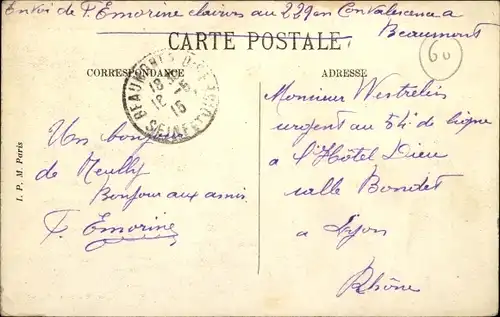 Envoi de F. Emorine clairon au 229 en Convalescence a
Beaumont
CARTE POSTALE
60
CORRESPONDANCE
ADRESSE
BEAUMONT
SEINE ET OISE
Un bonjour
de Neuilly
Bonjour aux amis
F. Emorine
Monsieur Westrelin
au 54e de ligne
a l'Hôtel Dieu
salle Bondet
a Lyon
Rhône
I. P. M. Paris